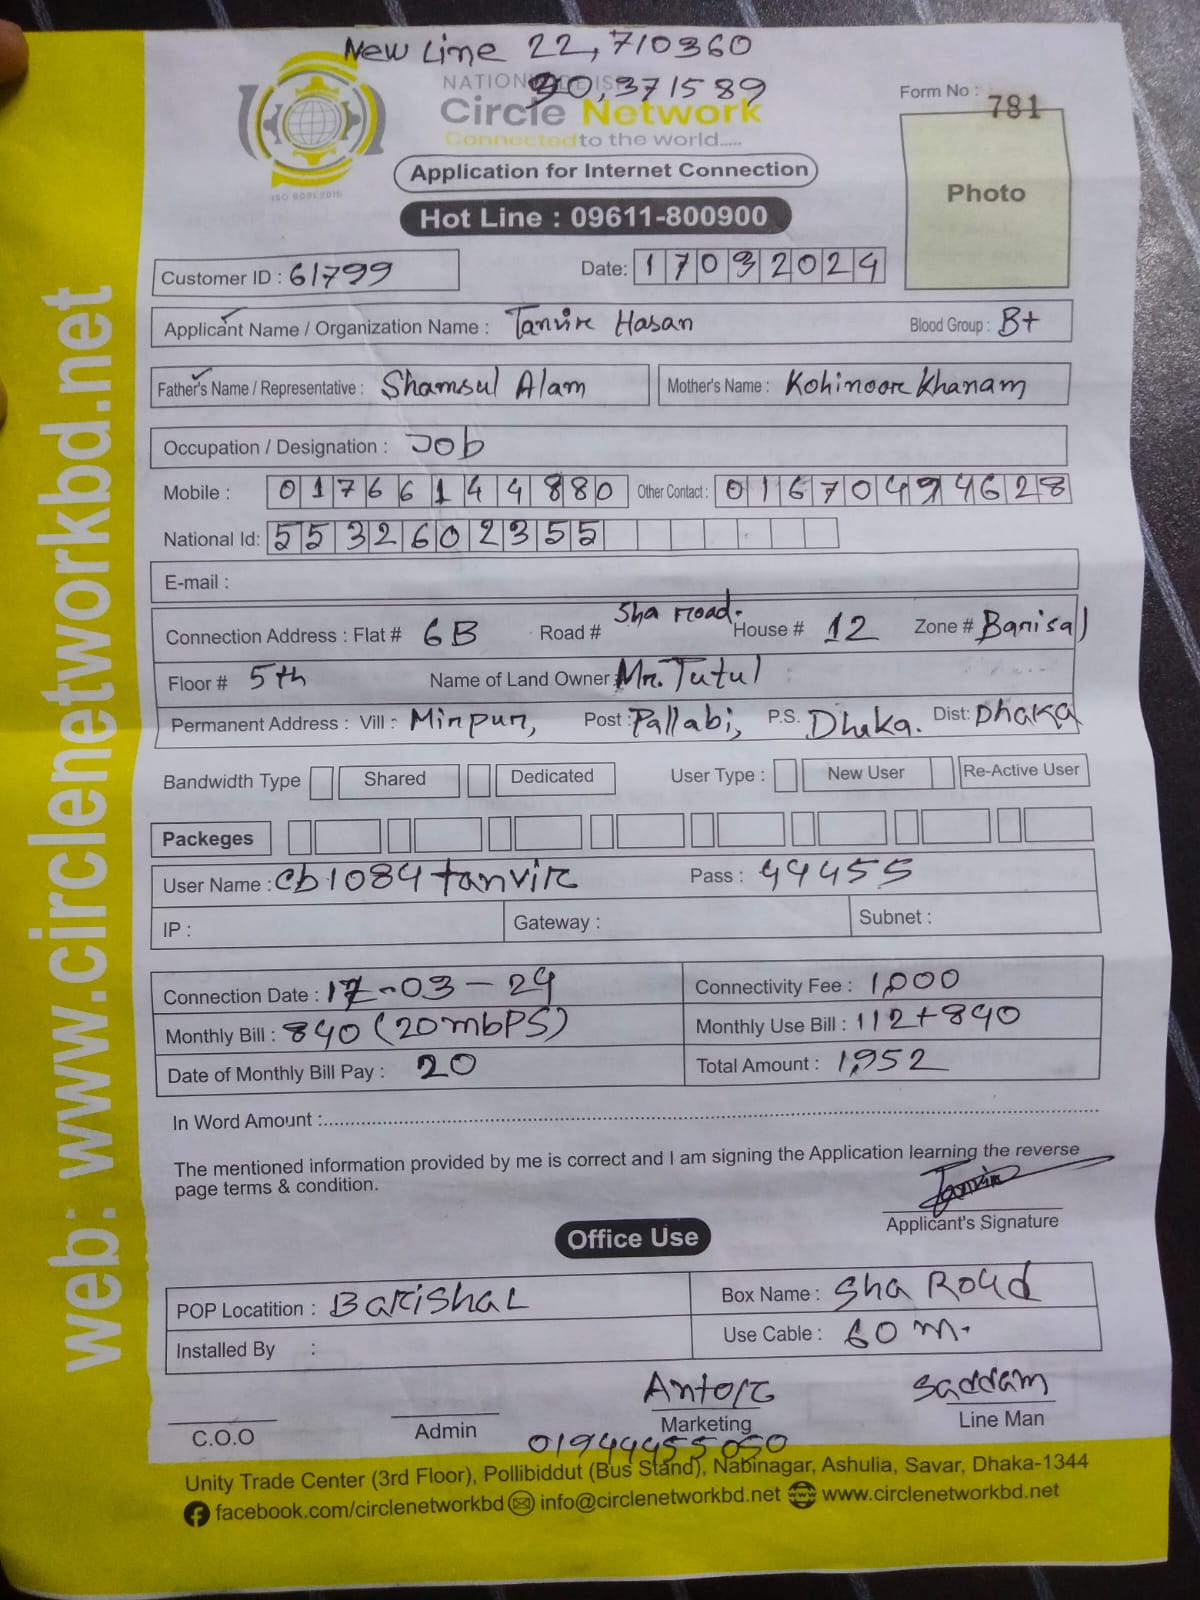 New Line 22,710360
30,371589
Circle Network
Connected to the world.....
ISO 9001:2015
Form No : 781
Photo
Application for Internet Connection
Hot Line : 09611-800900
Customer ID : 61799
Date: 17032024
Applicant Name / Organization Name : Tanvir Hasan
Blood Group : B+
Father's Name / Representative : Shamsul Alam
Mother's Name : Kohinoor Khanam
Occupation / Designation : Job
Mobile : 01766144880
Other Contact : 01670494628
National Id: 5532602355
E-mail :
Connection Address : Flat # 6B Road # Sha road. House # 12 Zone # Barisal
Floor # 5th Name of Land Owner : Mr. Tutul
Permanent Address : Vill : Mirpur, Post : Pallabi, P.S. Dhaka. Dist: DHAKA
Bandwidth Type Shared Dedicated User Type : New User Re-Active User
Packeges
User Name : cb1084tanvir Pass : 44455
IP : Gateway : Subnet :
Connection Date : 17-03-24
Connectivity Fee : 1,000
Monthly Bill : 840 (20mbPS)
Monthly Use Bill : 112+840
Date of Monthly Bill Pay : 20
Total Amount : 1,952
In Word Amount :
The mentioned information provided by me is correct and I am signing the Application learning the reverse
page terms & condition.
Tanvir
Applicant's Signature
Office Use
POP Locatition : BARISHAL
Box Name : Sha Road
Installed By :
Use Cable : 60 m.
Antor
Saddam
C.O.O
Admin
Marketing
Line Man
01944455050
Unity Trade Center (3rd Floor), Pollibiddut (Bus Stand), Nabinagar, Ashulia, Savar, Dhaka-1344
facebook.com/circlenetworkbd info@circlenetworkbd.net www.circlenetworkbd.net
web: www.circlenetworkbd.net